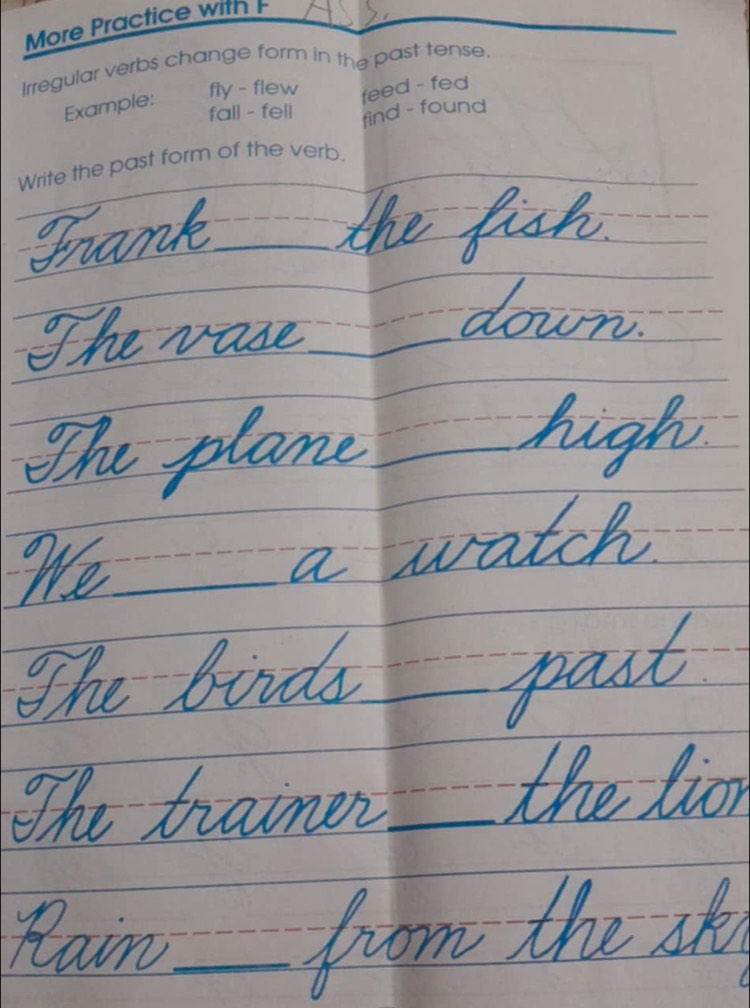 More Practice with F
Irregular verbs change form in the past tense.
Example: fly - flew feed - fed
fall - fell find - found
Write the past form of the verb.
Frank ____ the fish.
The vase ____ down.
The plane ____ high.
We ____ a watch.
The birds ____ past.
The trainer ____ the lion
Rain ____ from the sky